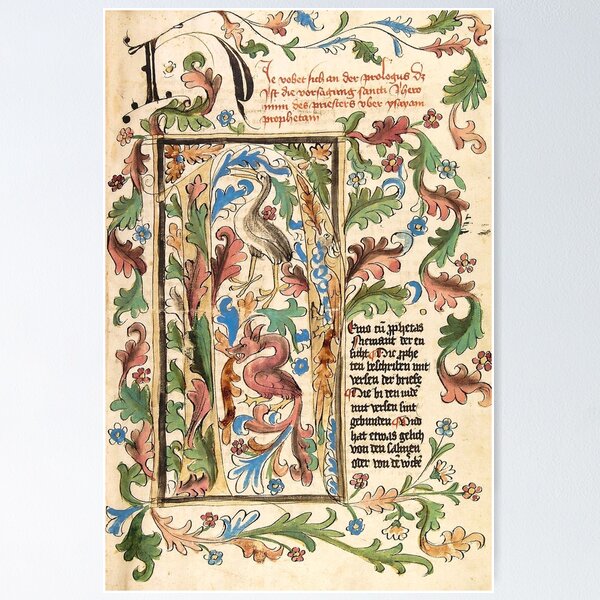 Je vohet sich an der prologus dz
Ist die vorsagung sancti Ihero
nimi des priesters vber ysayam
prophetam
Emo cū prophetas
Niemant der en
sicht Die prophe
ten beschriben mit
versen der briefe
Die bi den iudē
mit versen sint
gebunden Vnd
hat etwas gelich
von den salmen
oder von dē wercke